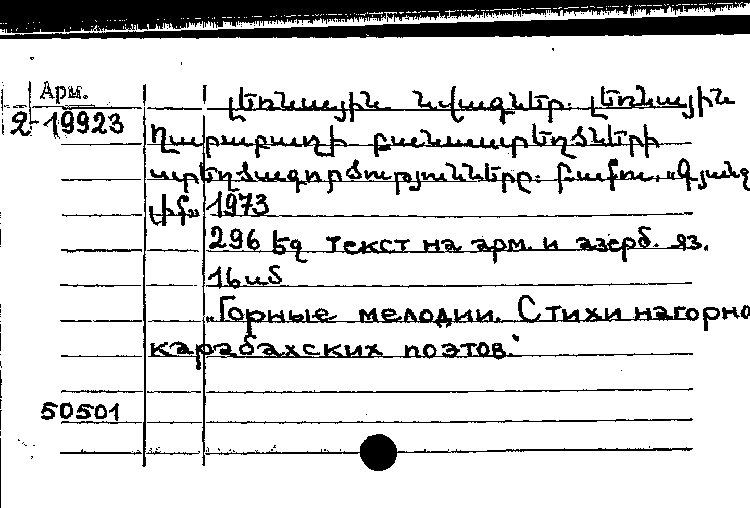 Арм.
Լեռնային նվագներ. Լեռնային
2-19923 Ղարաբաղի բանաստեղծների
ստեղծագործությունները. Բաքու, «Գյանջ
լիք» 1973
296 եզ текст на арм. и азерб. яз.
16 սմ
„Горные мелодии. Стихи нагорно
карабахских поэтов."
50501